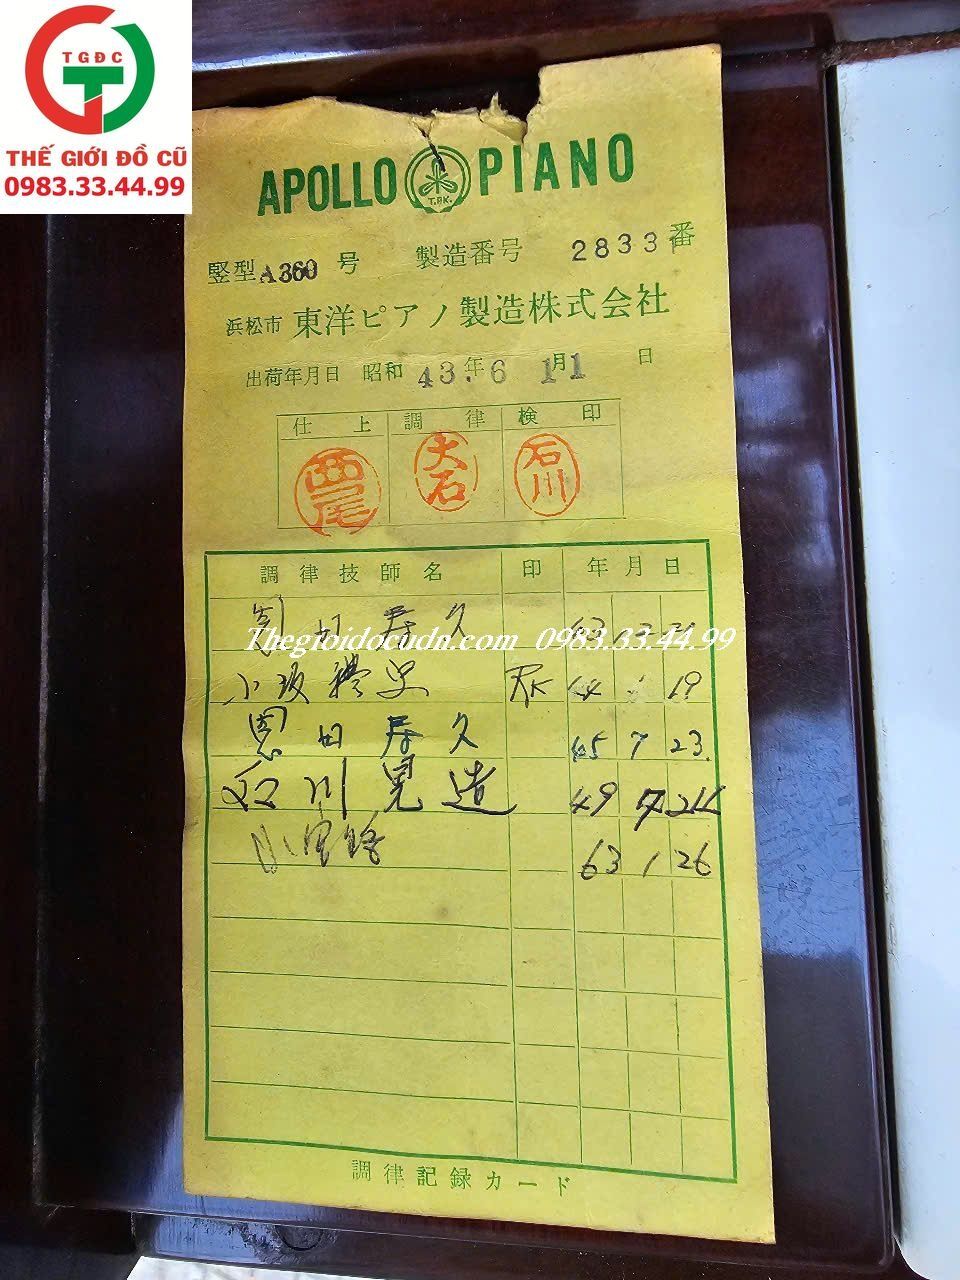 TGĐC
THẾ GIỚI ĐỒ CŨ
0983.33.44.99
APOLLO T.P.K. PIANO
竪型 A360 号 製造番号 2833 番
浜松市 東洋ピアノ製造株式会社
出荷年月日 昭和 43.年 6 月 11 日
仕上 調律 検印
西尾 大石 石川
調律技師名 印 年月日
田寿久 43
Thegioidocudn.com 0983.33.44.99
小坂 19
恩田寿久 45 7 23.
石川晃造 49
小 63 1 26
調律記録カード